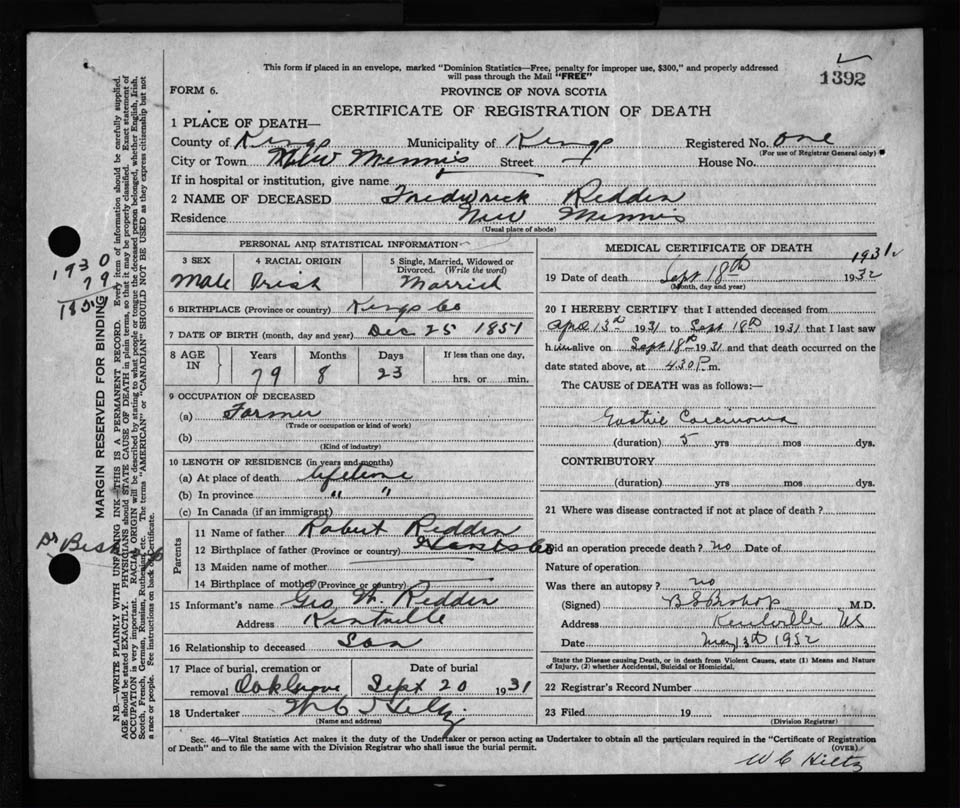 This form if placed in an envelope, marked "Dominion Statistics—Free, penalty for improper use, $300," and properly addressed
will pass through the Mail "FREE"
1392
FORM 6.
PROVINCE OF NOVA SCOTIA
CERTIFICATE OF REGISTRATION OF DEATH
1 PLACE OF DEATH—
County of Kings Municipality of Kings Registered No. one
(For use of Registrar General only)
City or Town New Minnis Street House No.
If in hospital or institution, give name
2 NAME OF DECEASED Fredrick Redden
Residence New Minnis
(Usual place of abode)
PERSONAL AND STATISTICAL INFORMATION
3 SEX 4 RACIAL ORIGIN 5 Single, Married, Widowed or
Divorced. (Write the word)
Male Irish Married
6 BIRTHPLACE (Province or country) Kings Co
7 DATE OF BIRTH (month, day and year) Dec 25 1851
8 AGE IN Years Months Days If less than one day,
79 8 23 hrs. or min.
9 OCCUPATION OF DECEASED
(a) Farmer
(Trade or occupation or kind of work)
(b)
(Kind of industry)
10 LENGTH OF RESIDENCE (in years and months)
(a) At place of death lifetime
(b) In province " "
(c) In Canada (if an immigrant)
Parents
11 Name of father Robert Redden
12 Birthplace of father (Province or country)
13 Maiden name of mother
14 Birthplace of mother (Province or country)
15 Informant's name Geo W. Redden
Address Kentville
16 Relationship to deceased Son
17 Place of burial, cremation or Date of burial
removal Oak Grove Sept 20 1931
18 Undertaker W C Hiltz
(Name and address)
MEDICAL CERTIFICATE OF DEATH
1931
19 Date of death Sept 18th 1932
(Month, day and year)
20 I HEREBY CERTIFY that I attended deceased from
Apr 13th 1931 to Sept 18th 1931 that I last saw
him alive on Sept 18th 1931 and that death occurred on the
date stated above, at 4.30 P.m.
The CAUSE of DEATH was as follows:—
Gastric Carcinoma
(duration) 5 yrs mos dys.
CONTRIBUTORY
(duration) yrs mos dys.
21 Where was disease contracted if not at place of death?
Did an operation precede death? no Date of
Nature of operation
Was there an autopsy? no
(Signed) B S Bishop M.D.
Address Kentville NS
Date May 13th 1932
State the Disease causing Death, or in death from Violent Causes, state (1) Means and Nature
of Injury, (2) whether Accidental, Suicidal or Homicidal.
22 Registrar's Record Number
23 Filed 19
(Division Registrar)
Sec. 46—Vital Statistics Act makes it the duty of the Undertaker or person acting as Undertaker to obtain all the particulars required in the "Certificate of Registration
of Death" and to file the same with the Division Registrar who shall issue the burial permit.
(OVER)
W C Hiltz
MARGIN RESERVED FOR BINDING
N.B.—WRITE PLAINLY WITH UNFADING INK—THIS IS A PERMANENT RECORD. Every item of information should be carefully supplied.
AGE should be stated EXACTLY. PHYSICIANS should STATE CAUSE OF DEATH in plain terms, so that it may be properly classified. Exact statement of
OCCUPATION is very important. RACIAL ORIGIN will be described by stating to what people or tongue the deceased person belonged, whether English, Irish,
Scotch, French, German, Russian, Ruthenian, etc. The terms "AMERICAN" or "CANADIAN" SHOULD NOT BE USED as they express citizenship but not
a race or people. See instructions on back of Certificate.
1930
79
Dr Bishop